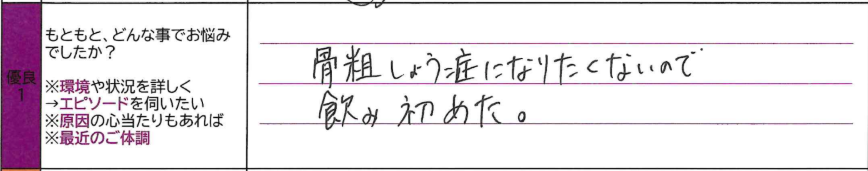 優良
1
もともと、どんな事でお悩み
でしたか？
※環境や状況を詳しく
→エピソードを伺いたい
※原因の心当たりもあれば
※最近のご体調
骨粗しょう症になりたくないので
飲み初めた。